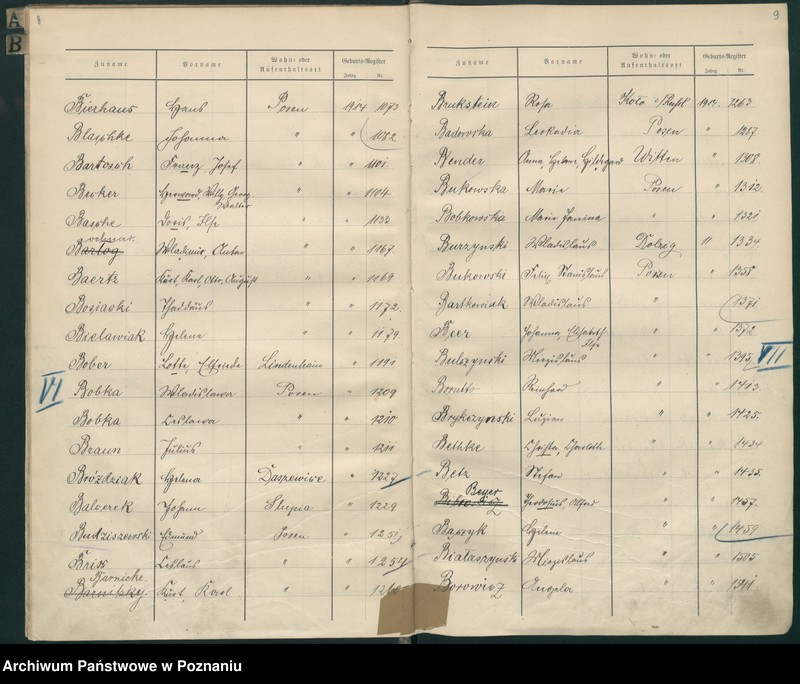 A
B
8
Zuname Vorname Wohn- oder Aufenthaltsort Geburts-Register
Jahrg. Nr.
Bierhaus Hans Posen 1914 1073
Blaschke Johanna " " 1082
Bartosch Franz, Josef " " 1101
Becker Georg, Walter " " 1104
Basche Doris, Ilse " " 1133
Bartog Wladimir, Anton " " 1167
Baertz Kurt, Karl, Otto, August " " 1169
Bosiacki Thaddäus " " 1172
Bielawiak Helene " " 1179
Bober Lotte, Lindenhain " 1191
VI Bobka Wladislawa Posen " 1209
Bobka Czeslawa " " 1210
Braun Julius " " 1211
Bróżdziak Helena Daszewice " 1227
Balcerek Johann Slupia " 1229
Budziszewski Edmund Posen " 1251
Brix Ceslaus " " 1254
Barnitzky Kurt, Karl " "
9
Zuname Vorname Wohn- oder Aufenthaltsort Geburts-Register
Jahrg. Nr.
Brukstein Rosa Koło 1914 1263
Badowska Leokadia Posen " 1287
Bender Anna, Helene, Hildegard Witten " 1308
Bukowska Marie Posen " 1312
Bobkowska Marie Janina " " 1321
Burzynski Wladislaus Dolzig " 1334
Bukowski Felix Stanislaus Posen " 1358
Bartkowiak Wladislaus " " 1371
Beer Johanna, Elisabeth Ilse " " 1372
Bulczynski Miezislaus " " 1395 VII
Borutto Reinhard " " 1413
Brykczynski Luzian " " 1425
Bethke Christa, Charlotte " " 1434
Betz Stefan " " 1455
Beyer Theodosius, Alfred " " 1457
Bączyk Helene " " 1459
Bialaszynski Miezislaus " " 1505
Borowicz Angela " " 1511
Archiwum Państwowe w Poznaniu